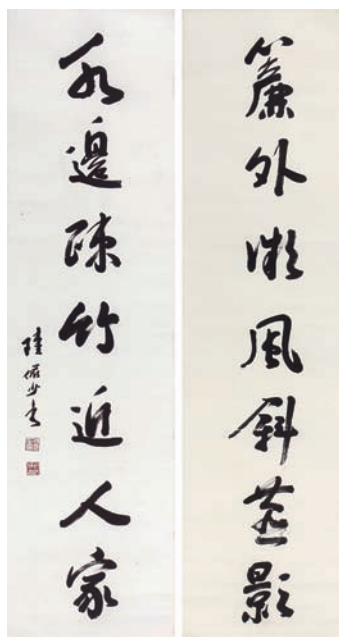 簾外微風斜燕影
水邊疎竹近人家
陸儼少書